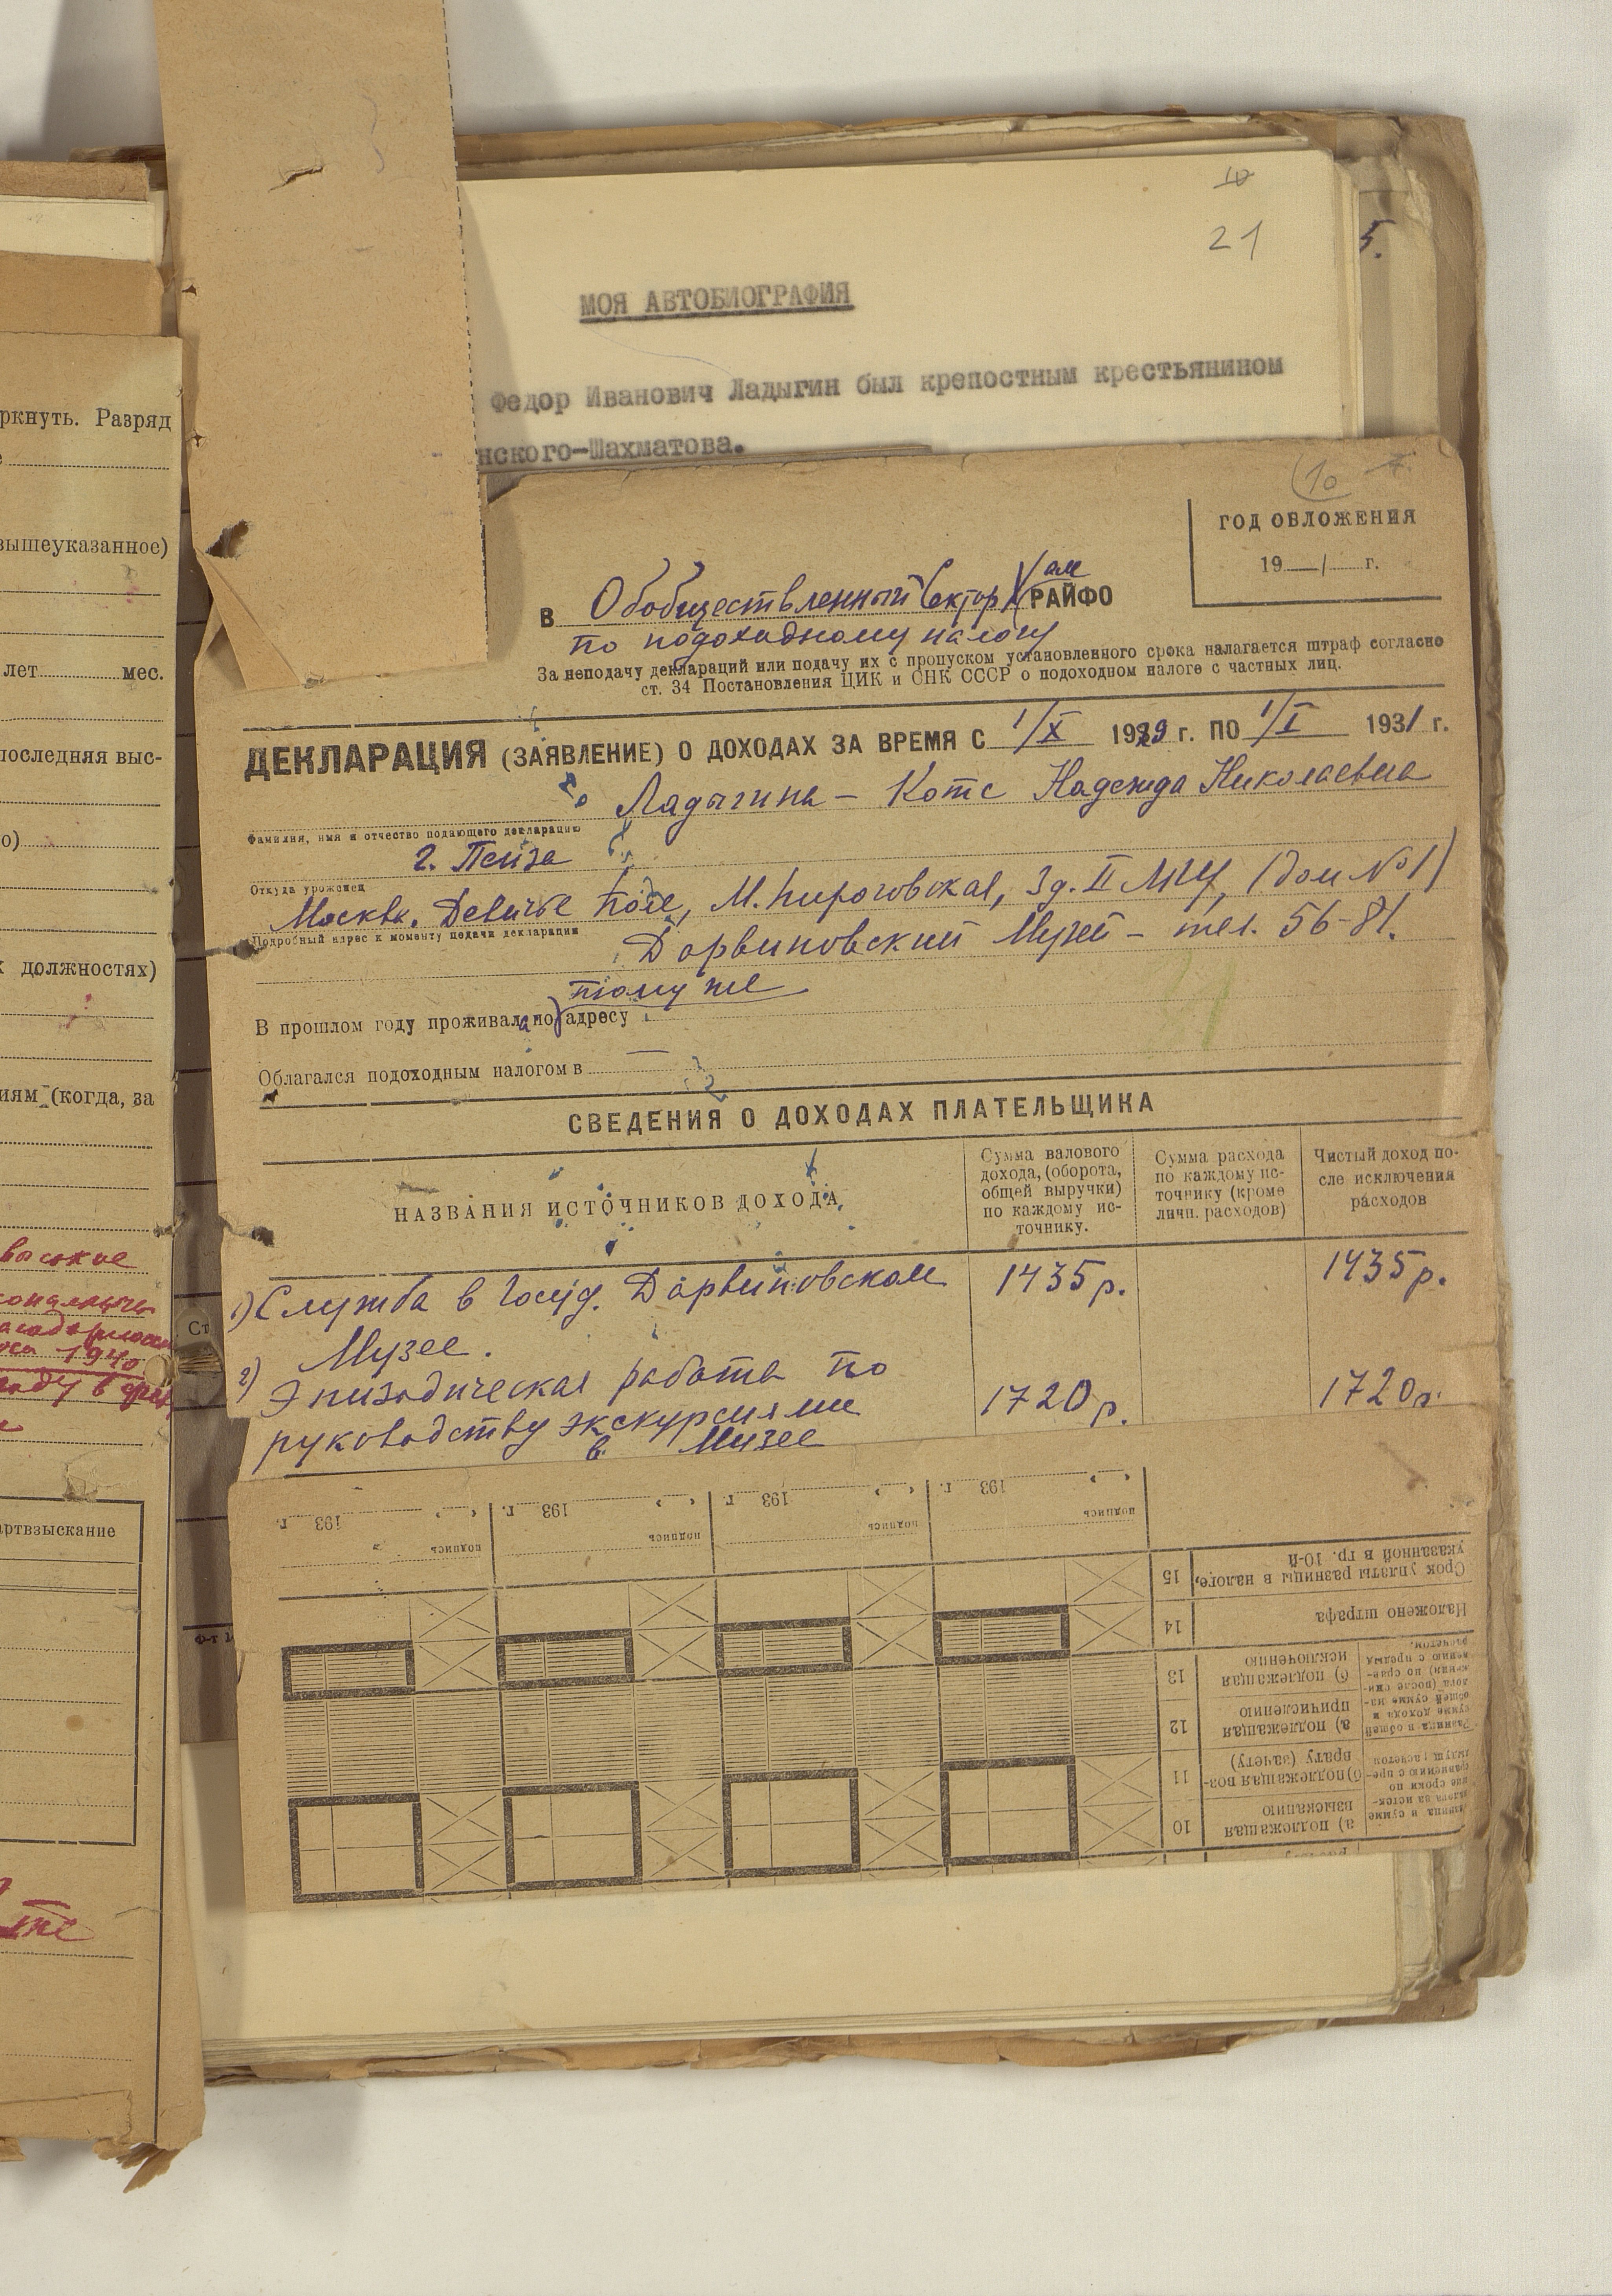 10
21
5.
МОЯ АВТОБИОГРАФИЯ
Федор Иванович Ладыгин был крепостным крестьянином
нского-Шахматова.
10
ГОД ОБЛОЖЕНИЯ
19 г.
В Обобществленный Сектор Хам РАЙФО
по подоходному налогу
За неподачу деклараций или подачу их с пропуском установленного срока налагается штраф согласно
ст. 34 Постановления ЦИК и СНК СССР о подоходном налоге с частных лиц.
ДЕКЛАРАЦИЯ (ЗАЯВЛЕНИЕ) О ДОХОДАХ ЗА ВРЕМЯ С 1/X 1929 г. ПО 1/I 1931 г.
Ладыгина – Котс Надежда Николаевна
Фамилия, имя и отчество подающего декларацию
г. Пенза
Откуда уроженец
Москва. Девичье поле, М. Пироговская, Зд. II МГУ, (дом № 1)
Подробный адрес к моменту подачи декларации
Дарвиновский Музей – тел. 56-81.
тому же
В прошлом году проживала по адресу
Облагался подоходным налогом в —
СВЕДЕНИЯ О ДОХОДАХ ПЛАТЕЛЬЩИКА
НАЗВАНИЯ ИСТОЧНИКОВ ДОХОДА
Сумма валового дохода, (оборота, общей выручки) по каждому источнику.
Сумма расхода по каждому источнику (кроме личн. расходов)
Чистый доход после исключения расходов
1) Служба в Госуд. Дарвиновском 1435 р. 1435 р.
Музее.
2) Эпизодическая работа по 1720 р. 1720 р.
руководству экскурсиями
в Музее
193 г. 193 г. 193 г. 193 г.
подпись подпись подпись подпись
15 Срок уплаты разницы в налоге, указанной в гр. 10-й
14 Наложено штрафа
13 б) подлежащая исключению
12 а) подлежащая причислению
11 б) подлежащая возврату (зачету)
10 а) подлежащая взысканию
ркнуть. Разряд
вышеуказанное)
лет мес.
последняя выс-
о)
х должностях)
иям (когда, за
высокое
1940
артвзыскание
Ст